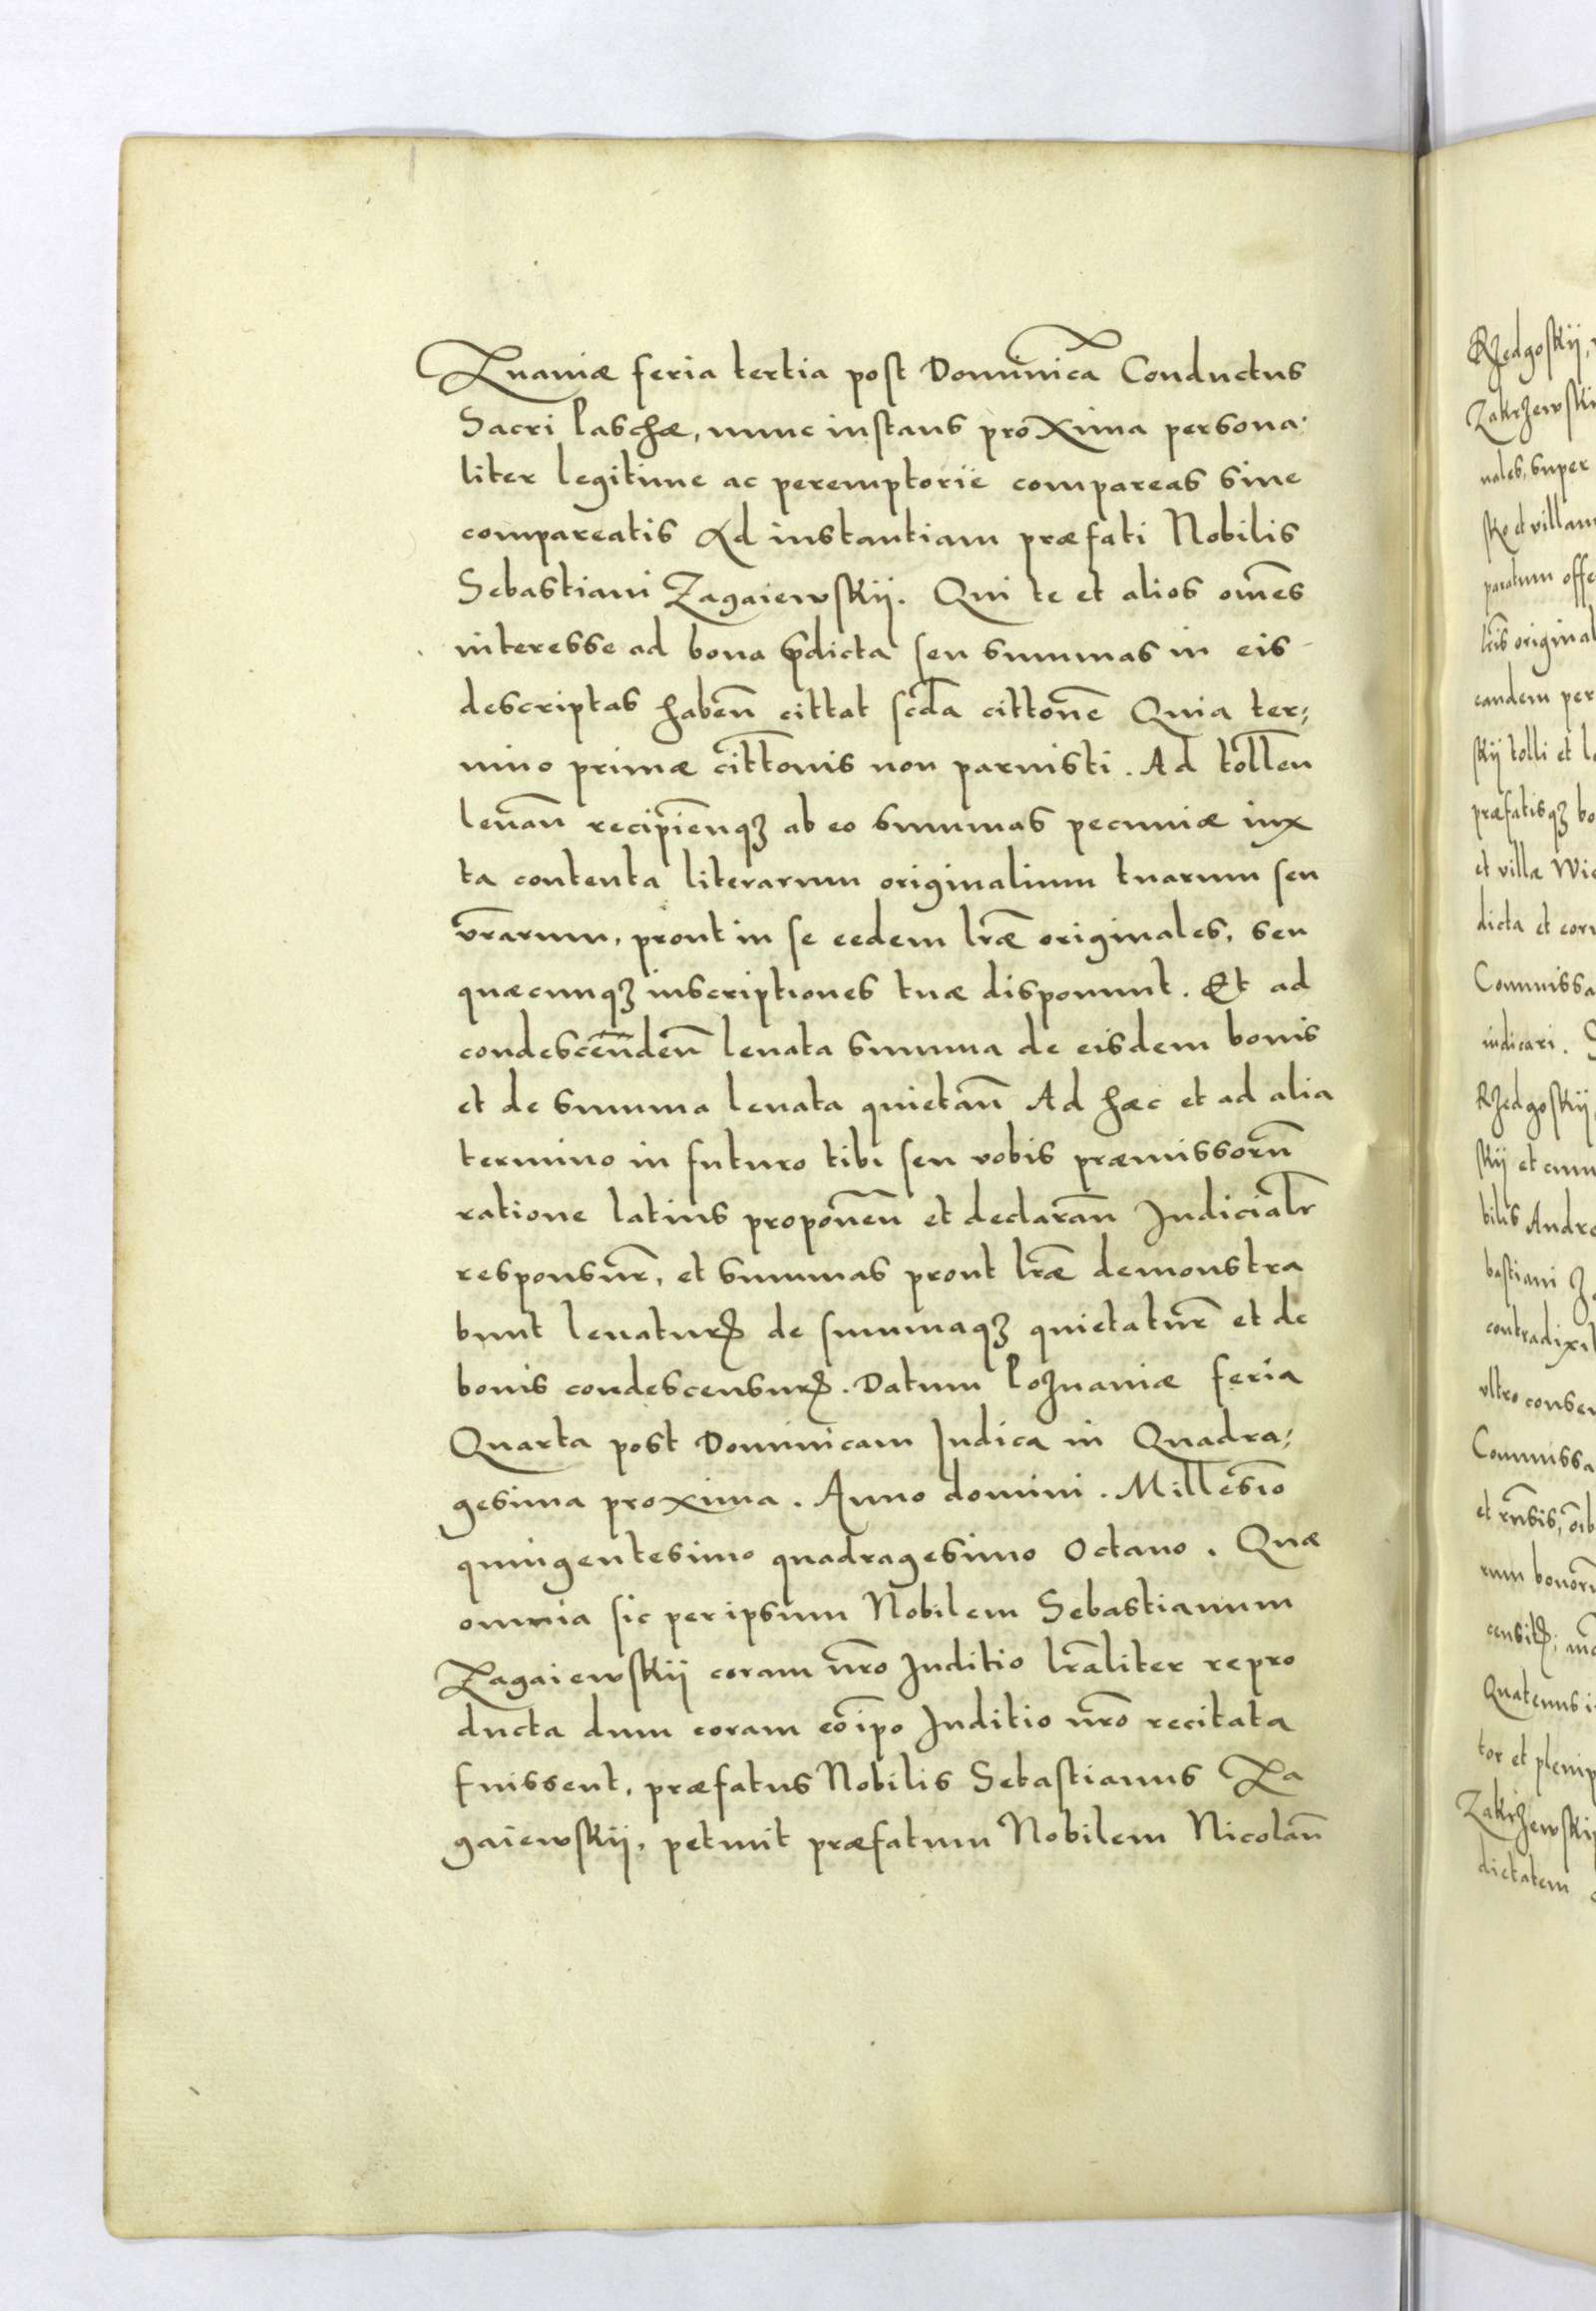 Znaniæ feria tertia post Dominicā Conductus
Sacri Paschæ, nunc instans proxima persona:
liter legitime ac peremptorie compareas siue
compareatis Ad instantiam præfati Nobilis
Sebastiani Zagaiewskij. Qui te et alios oms̄
interesse ad bona p̄dicta seu summas in eis
descriptas habeñ cittat scd̄a cittonē Quia ter;
mino primæ citt̄onis non paruisti. Ad tolleñ
leuañ recipieñqꝫ ab eo summas pecuniæ iux
ta contenta literarum originalium tuarum seu
vr̄arum, prout in se eedem lr̄æ originales, seu
quæcunqꝫ inscriptiones tuæ disponunt. Et ad
condescendeñ leuata summa de eisdem bonis
et de summa leuata quietañ Ad hæc et ad alia
termino in futuro tibi seu vobis præmissorū
ratione latius proponeñ et declarañ Judicialr̄
responsur̄, et summas prout lr̄æ demonstra
bunt leuaturꝝ de summaqꝫ quietatur̄ et de
bonis condescensurꝝ. Datum Poznaniæ feria
Quarta post Dominicam Judica in Quadra;
gesima proxima. Anno domini. Millesīo
quingentesimo quadragesimo Octauo. Quæ
omnia sic per ipsum Nobilem Sebastianum
Zagaiewskij coram nr̄o Juditio lr̄aliter repro
ducta dum coram eōipo Juditio nr̄o recitata
fuissent, præfatus Nobilis Sebastianus Za
gaiewskij, petiuit præfatum Nobilem Nicolaū
Rzedgoskij,
Zakrzewski
nales, super
sko et villam
paratum offe
lr̄is original
eandem per
skij tolli et l
præfatisqꝫ bo
et villæ Wie
dicta et eor
Commissa
iudicari.
Rzedgoskij
skij et cum
bilis Andre
bastiani Za
contradixi
vltro conse
Commissa
et
rum bonorū
censitꝝ;
Quatenus i
tor et plenip
Zakrzewskij
dictatem